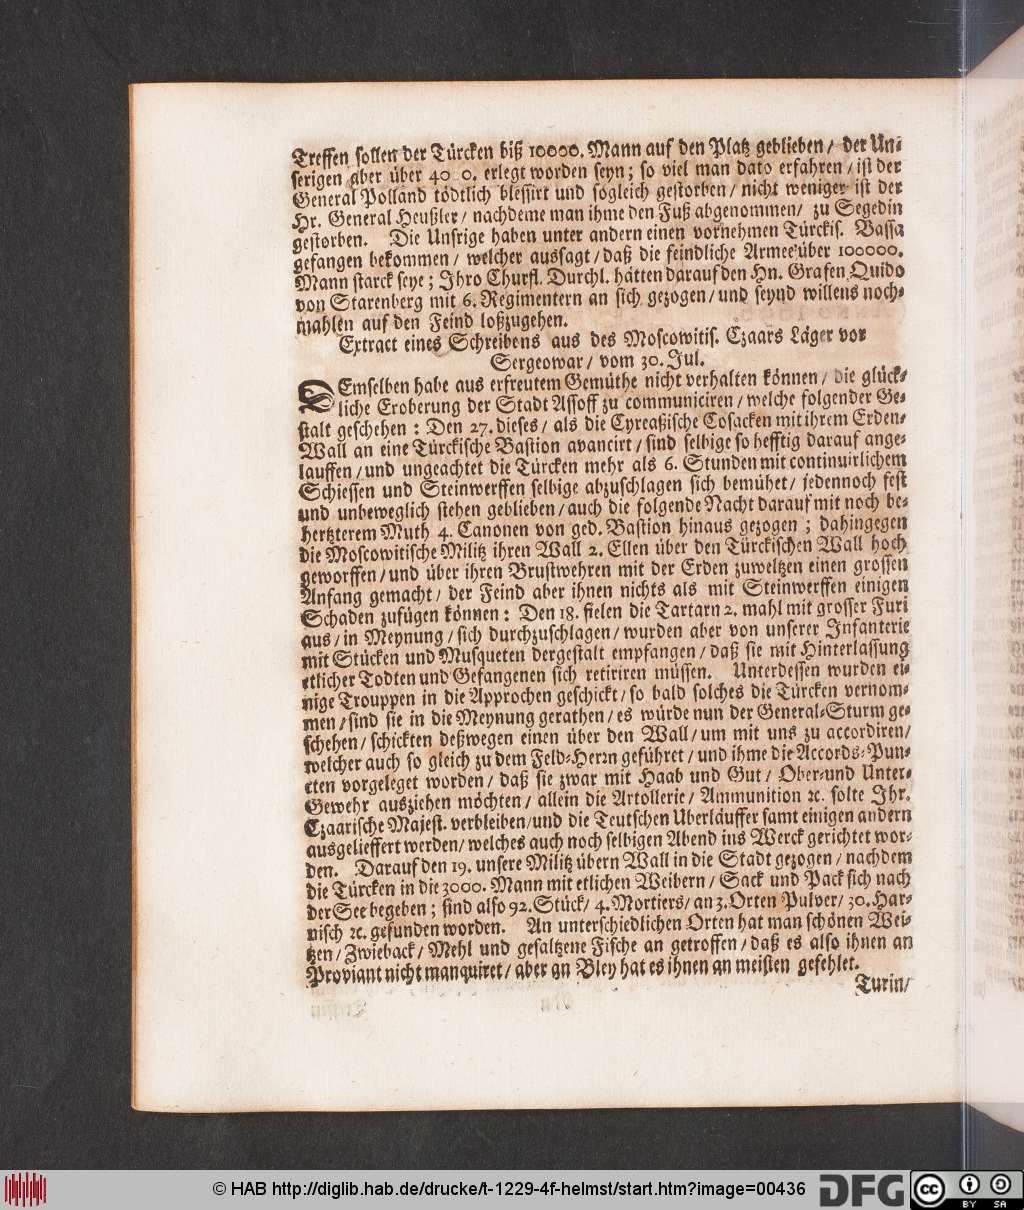 Treffen sollen der Türcken biß 10000. Mann auf den Platz geblieben / der Un-
serigen aber über 40 0. erlegt worden seyn; so viel man dato erfahren / ist der
General Polland tödtlich blessirt und sogleich gestorben / nicht weniger ist der
Hr. General Heußler / nachdeme man ihme den Fuß abgenommen / zu Segedin
gestorben. Die Unsrige haben unter andern einen vornehmen Türckis. Bassa
gefangen bekommen / welcher aussagt / daß die feindliche Armee über 100000.
Mann starck seye; Ihro Churfl. Durchl. hätten darauf den Hn. Grafen Quido
von Starenberg mit 6. Regimentern an sich gezogen / und seynd willens noch-
mahlen auf den Feind loßzugehen.
Extract eines Schreibens aus des Moscowitis. Czaars Läger vor
Sergeowar / vom 30. Jul.
DEmselben habe aus erfreutem Gemüthe nicht verhalten können / die glück-
liche Eroberung der Stadt Assoff zu communiciren / welche folgender Ge-
stalt geschehen: Den 27. dieses / als die Cyreaßische Cosacken mit ihrem Erden-
Wall an eine Türckische Bastion avancirt / sind selbige so hefftig darauf ange-
lauffen / und ungeachtet die Türcken mehr als 6. Stunden mit continuirlichem
Schiessen und Steinwerffen selbige abzuschlagen sich bemühet / jedennoch fest
und unbeweglich stehen geblieben / auch die folgende Nacht darauf mit noch be-
hertzterem Muth 4. Canonen von ged. Bastion hinaus gezogen; dahingegen
die Moscowitische Militz ihren Wall 2. Ellen über den Türckischen Wall hoch
geworffen / und über ihren Brustwehren mit der Erden zuweltzen einen grossen
Anfang gemacht / der Feind aber ihnen nichts als mit Steinwerffen einigen
Schaden zufügen können: Den 18. fielen die Tartarn 2. mahl mit grosser Furi
aus / in Meynung / sich durchzuschlagen / wurden aber von unserer Infanterie
mit Stücken und Musqueten dergestalt empfangen / daß sie mit Hinterlassung
etlicher Todten und Gefangenen sich retiriren müssen. Unterdessen wurden ei-
nige Trouppen in die Approchen geschickt / so bald solches die Türcken vernom-
men / sind sie in die Meynung gerathen / es würde nun der General-Sturm ge-
schehen / schickten deßwegen einen über den Wall / um mit uns zu accordiren /
welcher auch so gleich zu dem Feld-Herrn geführet / und ihme die Accords-Pun-
cten vorgeleget worden / daß sie zwar mit Haab und Gut / Ober- und Unter-
Gewehr ausziehen möchten / allein die Artollerie / Ammunition ꝛc. solte Ihr.
Czaarische Majest. verbleiben / und die Teutschen Uberläuffer samt einigen andern
ausgelieffert werden / welches auch noch selbigen Abend ins Werck gerichtet wor-
den. Darauf den 19. unsere Militz übern Wall in die Stadt gezogen / nachdem
die Türcken in die 3000. Mann mit etlichen Weibern / Sack und Pack sich nach
der See begeben; sind also 92. Stück / 4. Mortiers / an 3. Orten Pulver / 30. Har-
nisch ꝛc. gefunden worden. An unterschiedlichen Orten hat man schönen Wei-
tzen / Zwieback / Mehl und gesaltzene Fische an getroffen / daß es also ihnen an
Proviant nicht manquiret / aber an Bley hat es ihnen an meisten gefehlet.
Turin /
© HAB http://diglib.hab.de/drucke/t-1229-4f-helmst/start.htm?image=00436
DFG
cc BY SA